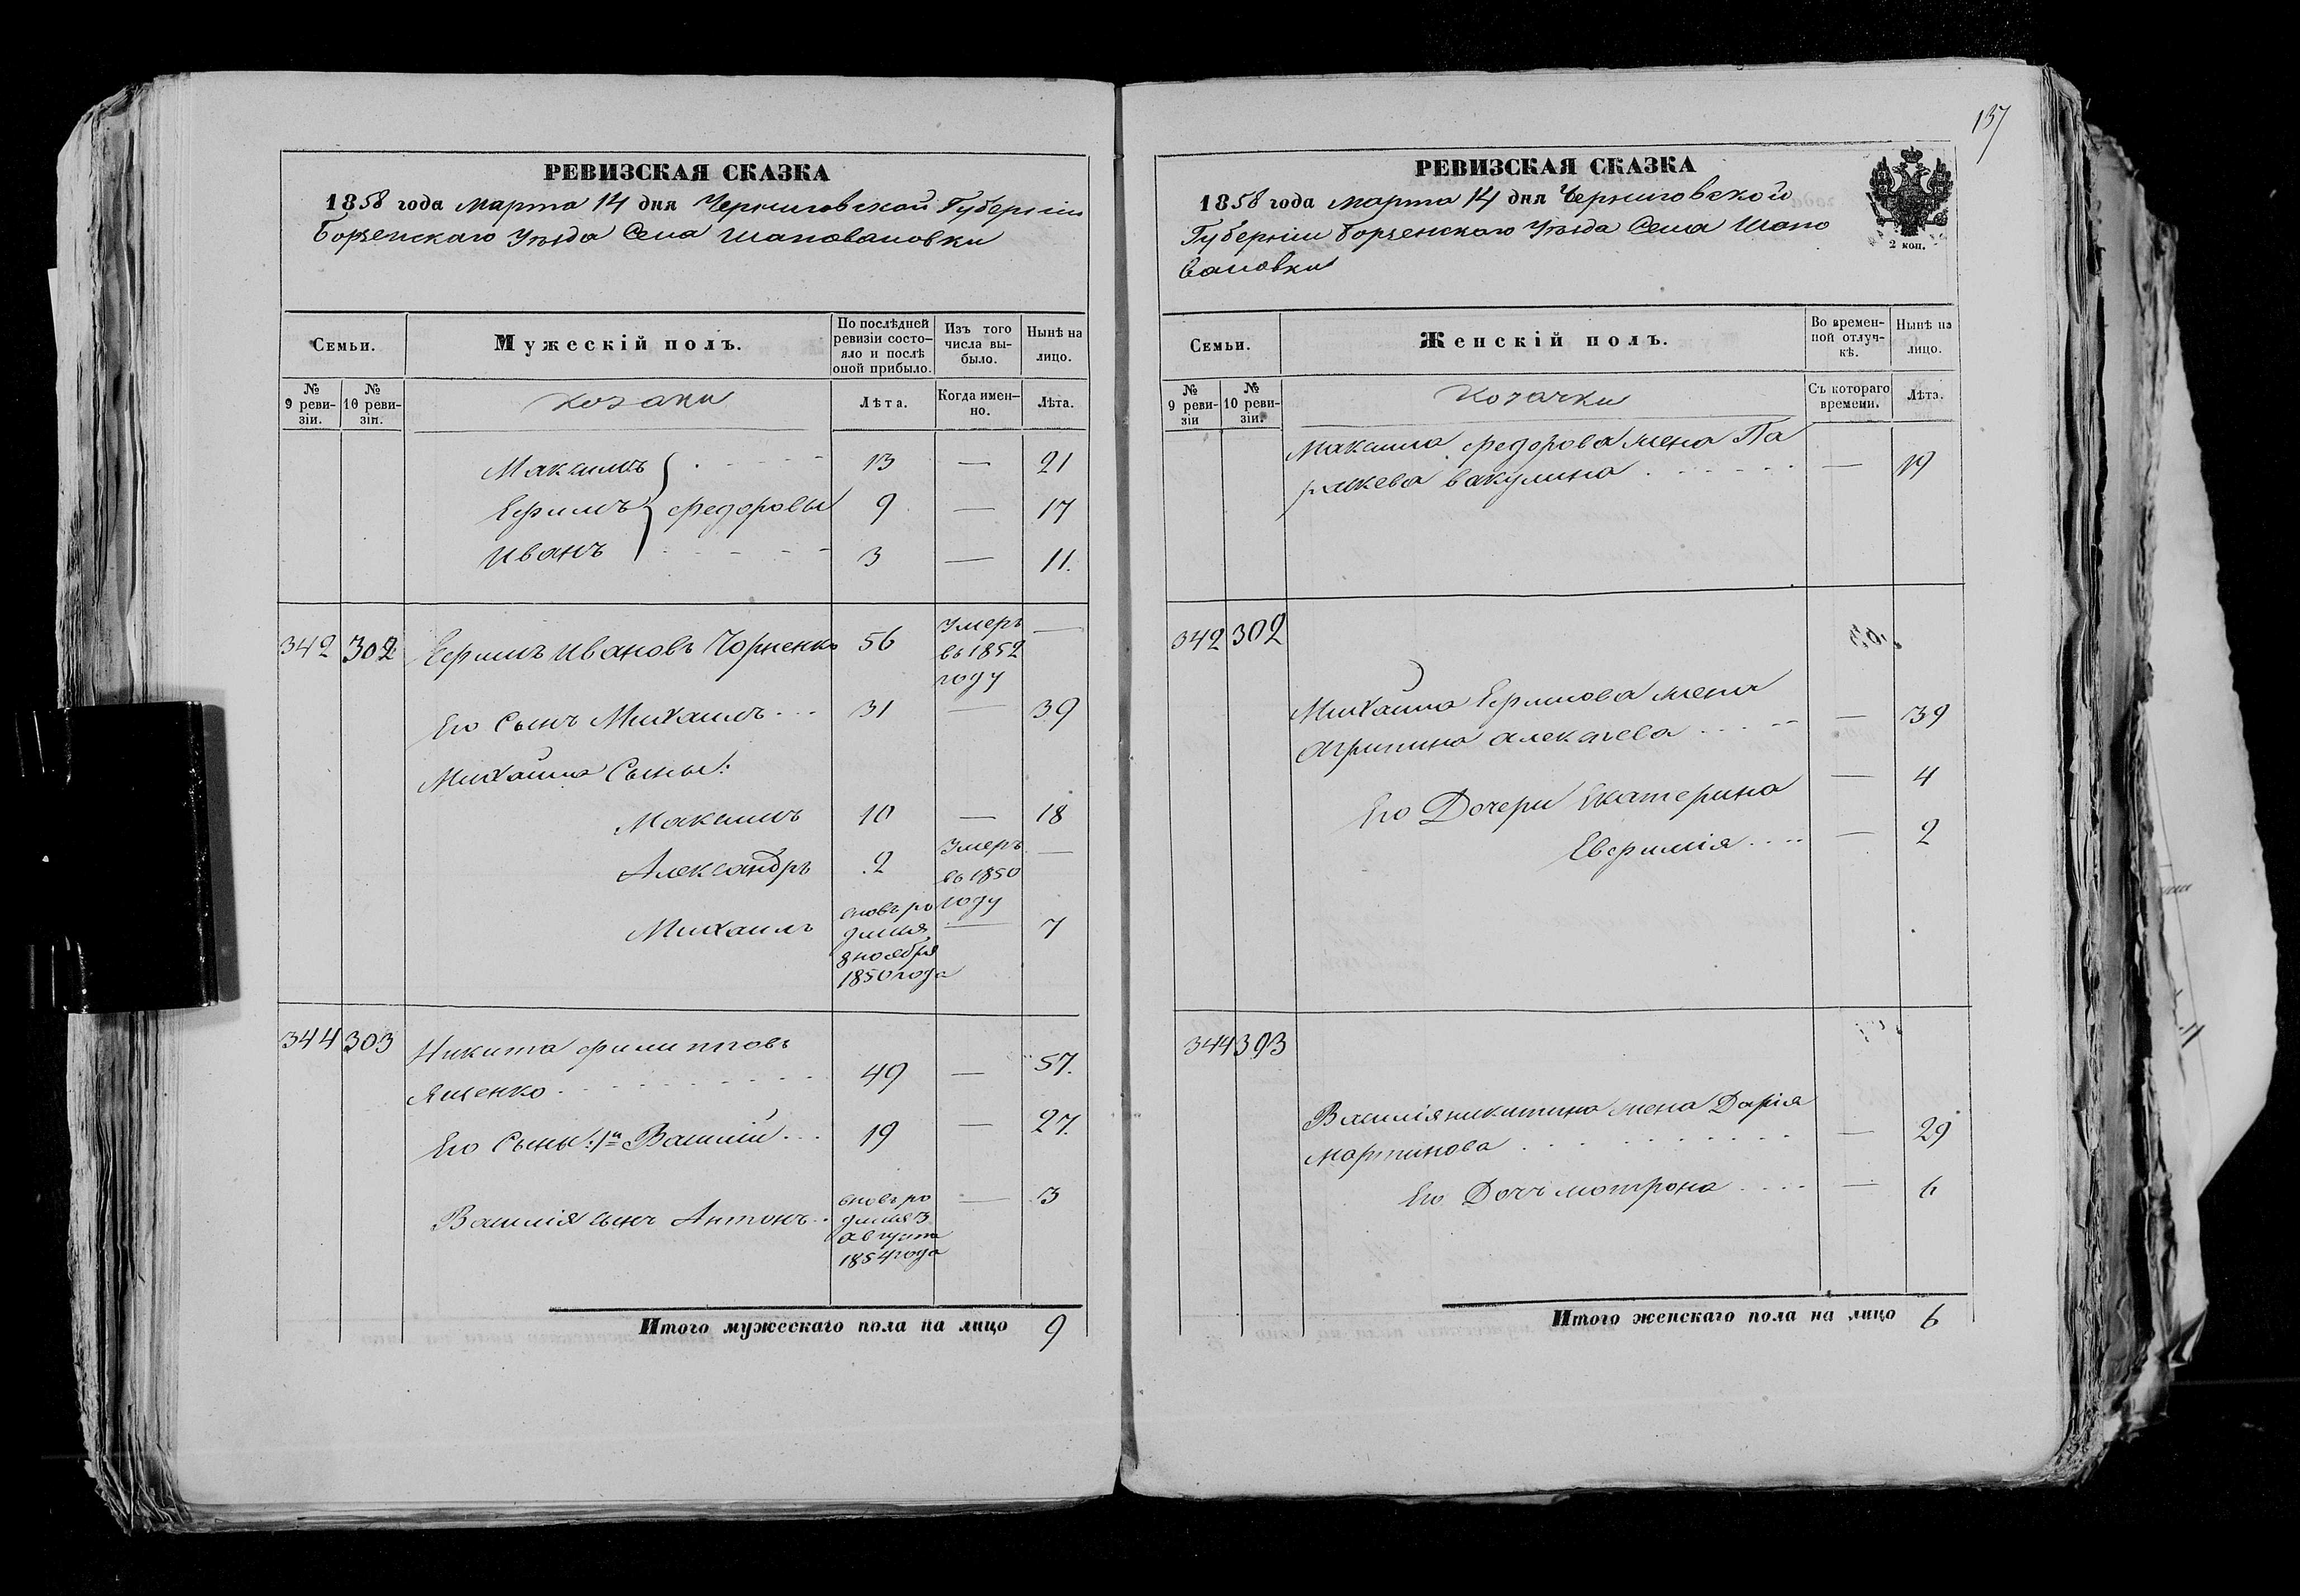 РЕВИЗСКАЯ СКАЗКА
1858 года марта 14 дня Черниговской Губернiи
Борзенскаго Уѣзда Села Шаповаловки
Семьи.
Мужескiй полъ.
По послѣдней ревизiи состояло и послѣ оной прибыло.
Изъ того числа выбыло.
Нынѣ на лицо.
№ 9 ревизiи.
№ 10 ревизiи.
козаки
Лѣта.
Когда именно.
Лѣта.
Максимъ 13 — 21
Ефимъ } федоровы 9 — 17
Иванъ 3 — 11.
342 302 Ефимъ Ивановъ Чорненко 56 Умеръ въ 1852 году —
Его Сынъ Михаилъ 31 — 39
Михаила Сыны:
Максимъ 10 — 18
Александръ 2 Умеръ въ 1850 году —
Михаилъ вновь родился 8 ноября 1850 года — 7
344 303 Никита филипповъ
Яценко 49 — 57.
Его Сыны: 1й Василiй 19 — 27.
Василiя сынъ Антонъ вновь родился 3 августа 1854 года — 3
Итого мужескаго пола на лицо 9
137
РЕВИЗСКАЯ СКАЗКА
1858 года марта 14 дня Черниговской
Губернiи Борзенскаго Уѣзда Села Шапо
валовки
2 коп.
Семьи.
Женскiй полъ.
Во временной отлучкѣ.
Нынѣ на лицо.
№ 9 ревизiи
№ 10 ревизiи.
козачки
Съ котораго времени.
Лѣта.
Максима федорова жена Па
раскева вакулина — 19
342 302
Михаила Ефимова жена
Агрипина алексѣева — 39
Его Дочери Екатерина — 4
Евфимiя — 2
344 303
Василiя никитина жена Дарiя
мартинова — 29
Его Дочь мотрона — 6
Итого женскаго пола на лицо 6